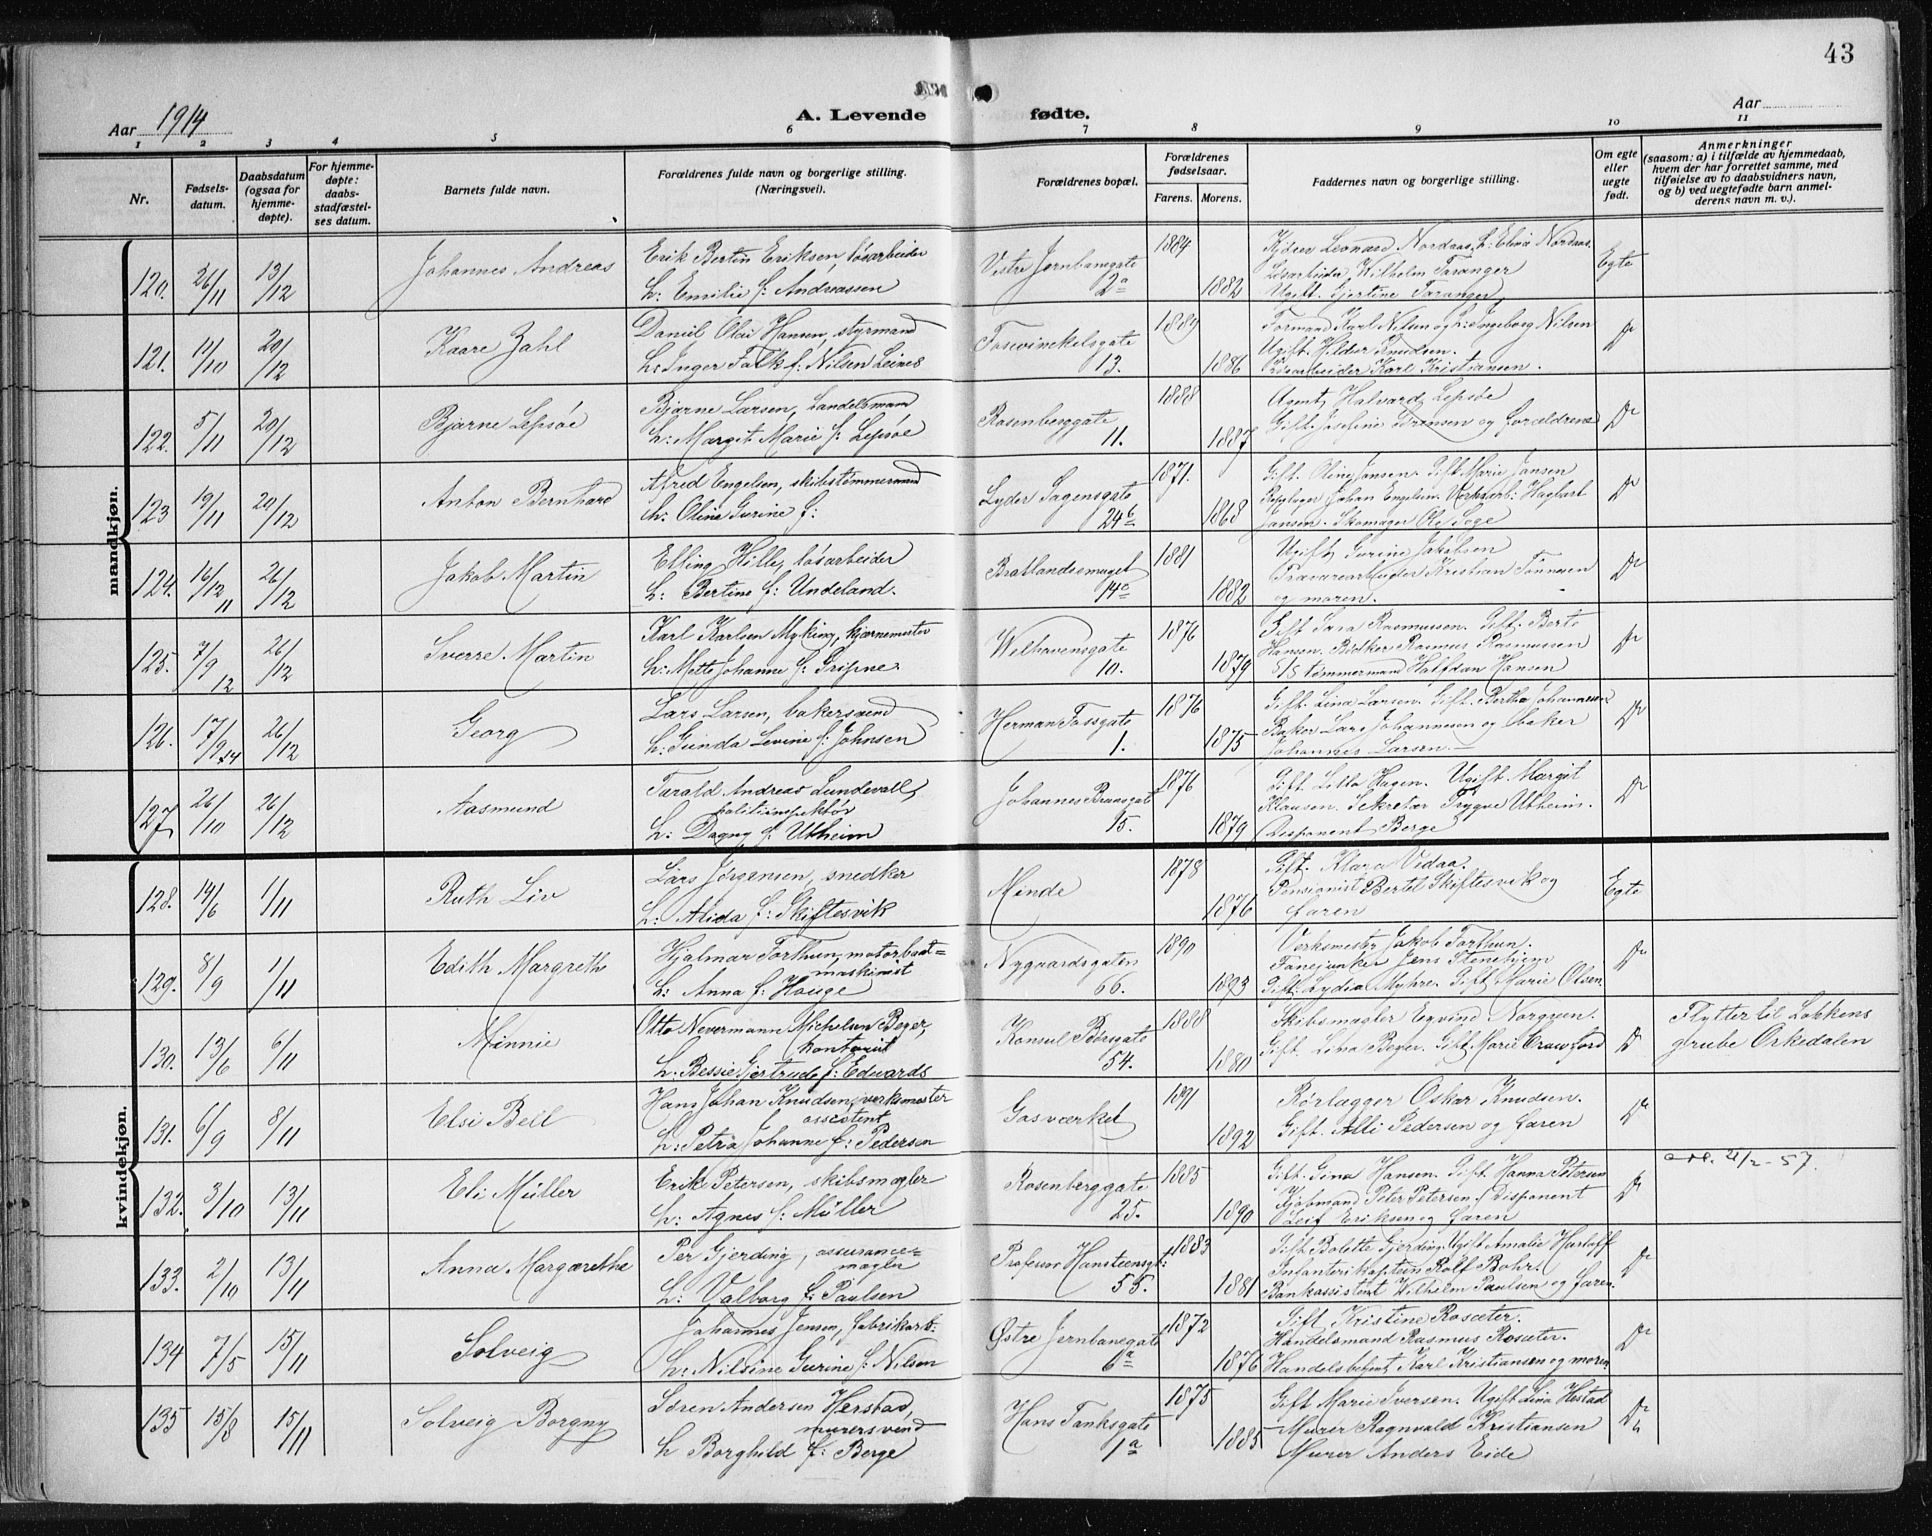 43
Aar 1914
A. Levende fødte.
Aar
1 2 3 4 5 6 7 8 9 10 11
Nr.
Fødsels-
datum.
Daabsdatum
(ogsaa for
hjemme-
døpte).
For hjemme-
døpte:
daabs-
stadfæstel-
ses datum.
Barnets fulde navn.
Forældrenes fulde navn og borgerlige stilling.
(Næringsvei).
Forældrenes bopæl.
Forældrenes
fødselsaar.
Farens. Morens.
Faddernes navn og borgerlige stilling.
Om egte
eller
uegte
født.
Anmerkninger
(saasom: a) i tilfælde av hjemmedaab,
hvem der har forrettet samme, med
tilføielse av to daabsvidners navn,
og b) ved uegtefødte barn anmel-
derens navn m. v.).
mandkjøn.
120. 26/11 13/12 Johannes Andreas
Erik Bertin Eriksen, løsarbeider
h: Emilie f: Andreassen
Vestre Jernbanegate
2a
1884 1882
Leonard Nordaas, h: Elvia Nordaas.
Løsarbeider Wilhelm Taranger
Ugift. Gjertine Taranger
Egte
121. 11/10 20/12 Kaare Zahl
Daniel Olai Hansen, styrmand
h: Inger Falk f: Nilsen Leines
Fosswinckelsgate
13.
1889 1886
Formand Karl Nilsen og h: Ingeborg Nilsen
Ugift. Hildur Knudsen.
Løsarbeider Karl Kristiansen.
Do
122. 5/11 20/12 Bjarne Lepsøe
Bjarne Larsen, handelsmand
h: Margit Marie f: Lepsøe
Rosenberggate
11.
1888 1887
Agent Halvard Lepsøe
Gift. Josefine Sørensen og forældrene
Do
123 19/11 20/12 Anton Bernhard
Alfred Engelsen, skibstømmermand
h: Oline Gurine f:
Lyder Sagensgate
24b
1871. 1868
Gift. Oline Jansen. Gift. Marie Jansen
Johan Engelsen. Verkserb: Hagbart
Jansen. Skomager Ole Sage
Do
124. 16/12 11 26/12 Jakob Martin
Elling Hille, løsarbeider
h: Bertine f: Undeland.
Bratlandsmuget
14c
1881 1882
Ugift Gurine Jakobsen
Trævarearbeider Kristian Tønnesen
og moren.
Do
125. 7/9 12 26/12 Sverre Martin
Karl Karlsen Myking, kjørnemester
h: Mette Johanne f: Gripne
Welhavensgate
10.
1876 1879
Gift Sara Rasmussen. Gift. Berte
Hansen. Bødker Rasmus Rasmussen
tømmermand Halfdan Hansen
Do
126. 17/9 14 26/12 Georg
Lars Larsen, bakersvend
h: Gunda Levine f: Johnsen
Herman Fossgate
1.
1876 1875
Gift. Lina Larsen. Gift. Bertha Johannesen.
Baker Lars Johannesen og baker
Johannes Larsen.
Do
127 26/10 26/12 Aasmund
Tarald Andreas Lundevall,
politiinspektør
h: Dagny f: Utheim
Johannes Brunsgate
15.
1876 1879
Gift. Litta Hagen. Ugift. Margit
Klausen. Sekretær Trygve Utheim.
Disponent Berge
Do
kvindekjøn.
128. 14/6 1/11 Ruth Liv
Lars Jørgensen, snedker
h: Alida f: Skiftesvik
Minde
1878 1876
Gift. Klara Vedaa.
Pensionist Bertel Skiftesvik og
faren
Egte
129. 8/9 1/11 Edith Margrethe
Hjalmar Forthun, motorbaat-
maskinist
h: Anna f: Hauge
Nygaardsgaten
66.
1890 1893
Verksmester Jakob Forthun.
Fanejunker Jens Stenebjem
Gift: Lydia Myhre. Gift. Marie Olsen
Do
130. 13/6 6/11 Minnie
Otto Nevermann Michelsen Beyer,
kontorist
h: Bessie Gjertrude f: Edwards
Konsul Børsgate
54.
1888 1880
Skibsmægler Eyvind Norgreen.
Gift. Lina Beyer. Gift Marie Crawford
Do
Flytter til Løkkens
grube Orkedalen
131. 6/9 8/11 Elsi Bell
Hans Johan Knudsen, verksmester
assistent
h: Petra Johanne f: Pedersen
Gasværket
1891 1892
Rørlægger Oskar Knudsen.
Gift. Alli Pedersen og faren
Do
132. 3/10 13/11 Eli Müller
Erik Petersen, skibsmægler
h: Agnes f: Müller
Rosenberggate
25.
1885 1890
Gift. Gina Hansen. Gift Hanna Petersen
Kjøbmand Peter Petersen. Disponent
Leif Eriksen og faren
Do
2/2-57.
133. 2/10 13/11 Anna Margarethe
Per Gjerding, assurance-
mægler
h: Valborg f: Paulsen
Profesor Hansteensgt:
55.
1883 1881
Gift. Bolette Gjerding. Ugift Amalie Harloff
Infanterikaptein Rolf Bohr.
Bankassistent Wilhelm Paulsen og faren.
Do
134 7/5 15/11 Solveig
Johannes Jensen, fabrikarb:
h: Nilsine Gurine f: Nilsen
Østre Jernbanegate
6a
1872 1876
Gift Kristine Rosæter.
Handelsmand Rasmus Rosæter.
Handelsbetjent Karl Kristiansen og moren
Do
135 15/8 15/11 Solveig Borgny
Søren Andersen Herstad,
murersvend
h Borghild f: Berge
Hans Tanksgate
1a
1875 1885
Gift Marie Iversen. Ugift Lina Hestad
Murer Ragnvald Kristiansen
Murer Anders Eide
Do